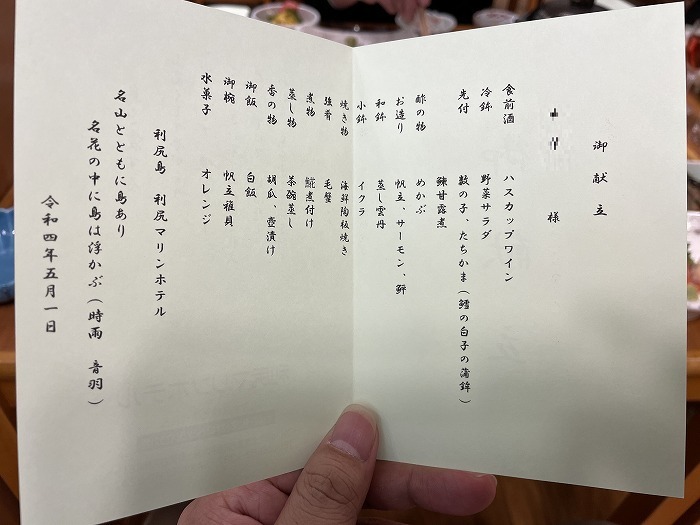 御献立
様
食前酒　ハスカップワイン
冷鉢　野菜サラダ
先付　数の子、たちかま（鱈の白子の蒲鉾）
鰊甘露煮
酢の物　めかぶ
お造り　帆立、サーモン、鮃
和鉢　蒸し雲丹
小鉢　イクラ
焼き物　海鮮陶板焼き
強肴　毛蟹
煮物　糀煮付け
蒸し物　茶碗蒸し
香の物　胡瓜、壺漬け
御飯　白飯
御椀　帆立稚貝
水菓子　オレンジ
利尻島　利尻マリンホテル
名山とともに島あり
名花の中に島は浮かぶ（時雨　音羽）
令和四年五月一日